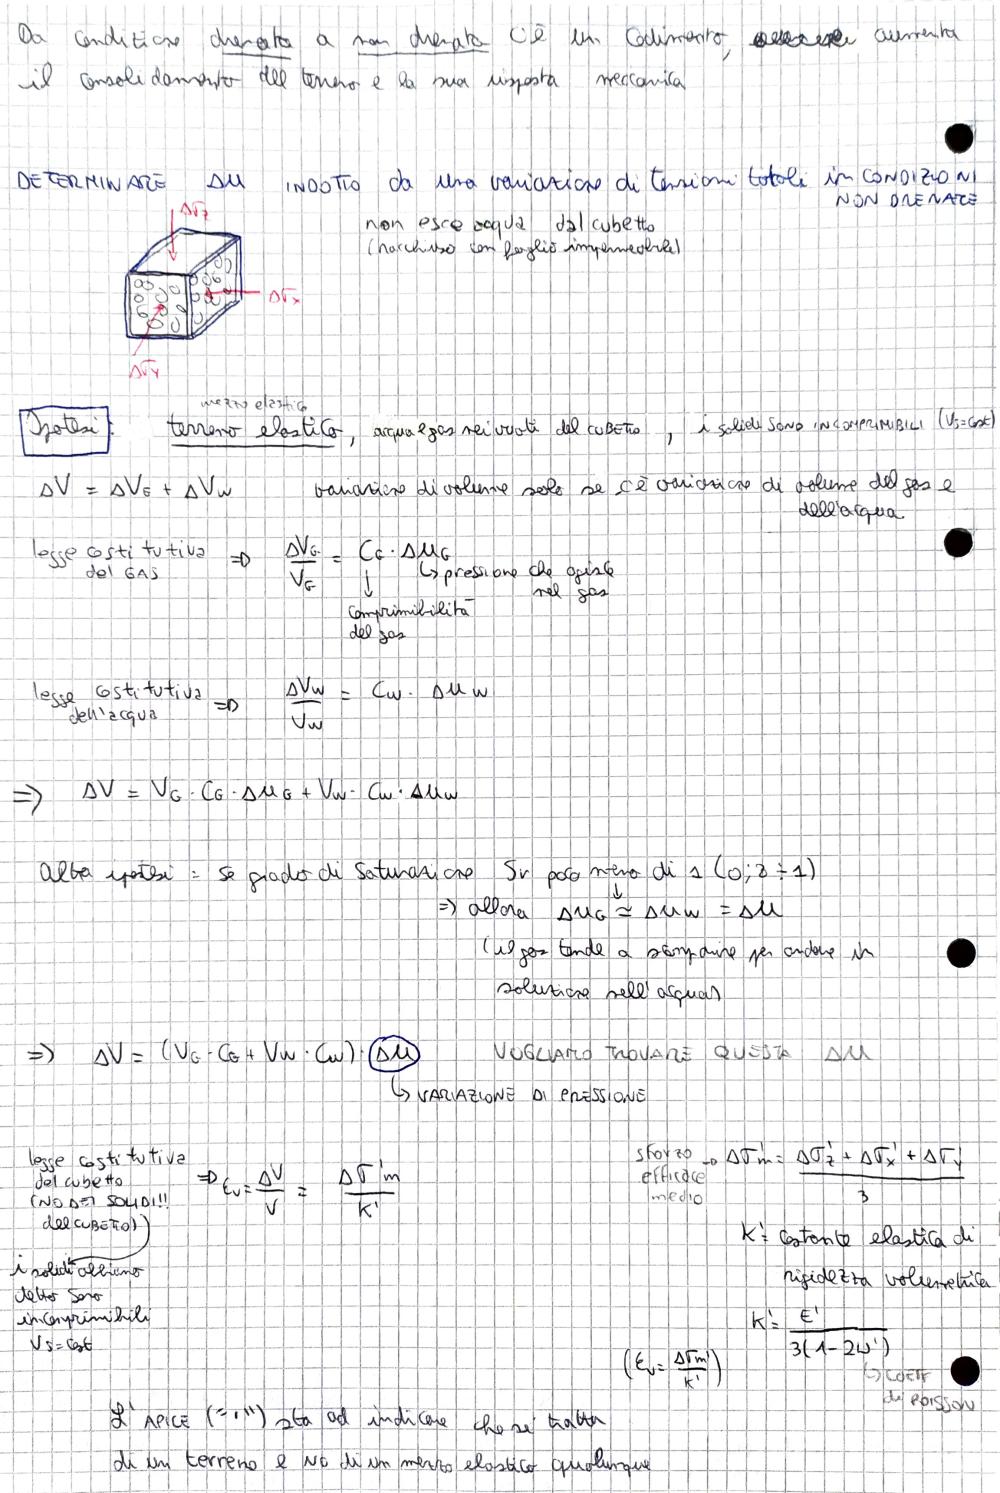 Da condizione drenata a non drenata c'è un cedimento, aumenta
il consolidamento del terreno e la sua risposta meccanica
DETERMINARE Δu INDOTTO da una variazione di tensioni totali in CONDIZIONI
NON DRENATE
non esce acqua dal cubetto
(racchiuso con foglio impermeabile)
Δσz
Δσx
Δσy
mezzo elastico
Ipotesi: terreno elastico, acqua e gas nei vuoti del CUBETTO, i solidi SONO INCOMPRIMIBILI (Vs=cost)
ΔV = ΔVG + ΔVW variazione di volume solo se c'è variazione di volume del gas e
dell'acqua
legge costitutiva del GAS => ΔVG/VG = CG · ΔuG
↳ pressione che agisce
nel gas
comprimibilità
del gas
legge costitutiva dell'acqua => ΔVW/VW = CW · ΔuW
=> ΔV = VG · CG · ΔuG + VW · CW · ΔuW
Altra ipotesi = se grado di saturazione Sr poco meno di 1 (0,8 ÷ 1)
=> allora ΔuG ≃ ΔuW = Δu
(il gas tende a scomparire per andare in
soluzione nell'acqua)
=> ΔV = (VG · CG + VW · CW) · Δu VOGLIAMO TROVARE QUESTA Δu
↳ VARIAZIONE DI PRESSIONE
legge costitutiva
del cubetto
(NO DEI SOLIDI!!
del CUBETTO)
=> εv = ΔV/V = Δσ'm/K'
sforzo
efficace
medio
→ Δσ'm = Δσ'z + Δσ'x + Δσ'y / 3
i solidi abbiamo
detto sono
incomprimibili
Vs = cost
K' = costante elastica di
rigidezza volumetrica
K' = E' / 3(1-2ν')
↳ COEFF
di POISSON
(εv = Δσ'm/K')
L'APICE (= ,") sta ad indicare che si tratta
di un terreno e NO di un mezzo elastico qualunque